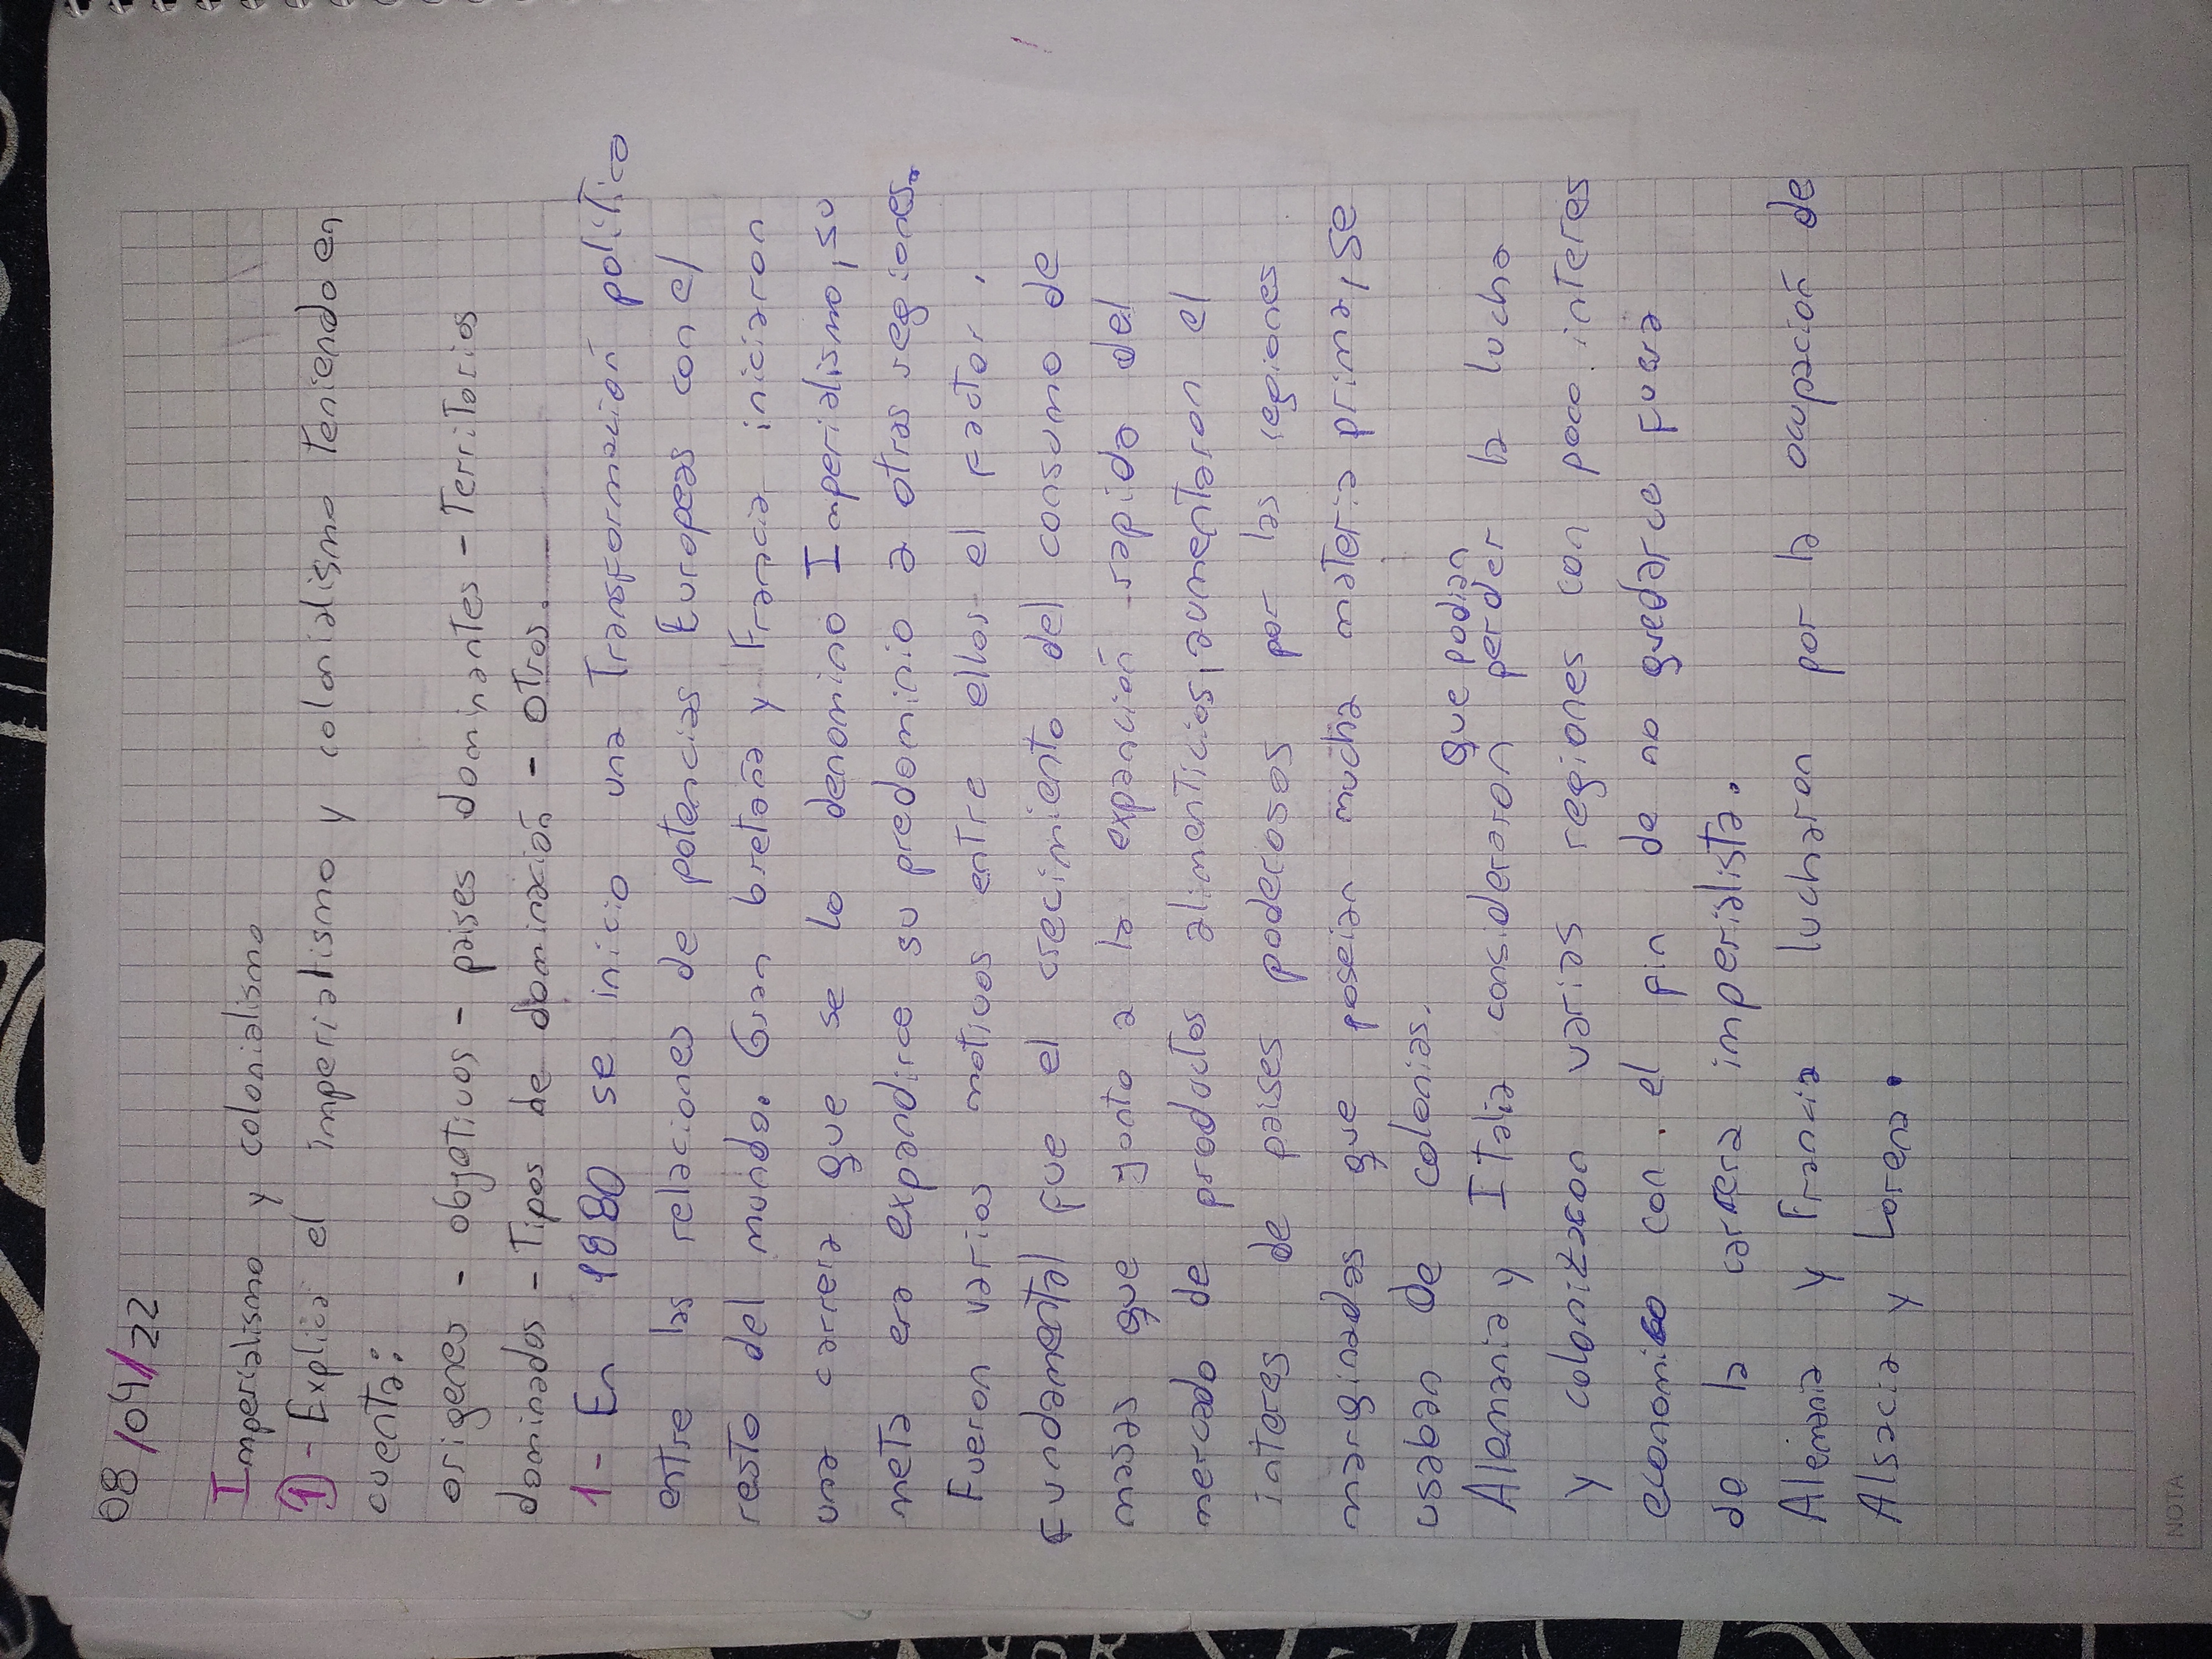 08/04/22
Imperialismo y colonialismo
1)- Explicá el imperialismo y colonialismo teniendo en
cuenta:
origenes - objetivos - paises dominantes - Territorios
dominados - Tipos de dominación - otros.
1- En 1880 se inicio una Transformación político
entre las relaciones de potencias Europeas con el
resto del mundo. Gran bretaña y Francia iniciaron
una carrera que se lo denomino Imperialismo, su
meta era expandirce su predominio a otras regiones.
Fueron varios motivos entre ellos el factor,
Fundamental fue el crecimiento del consumo de
masas que junto a la expanción rapida del
mercado de productos alimenticios, aumentaron el
interes de paises poderosos por las regiones
marginadas que poseian mucha materia prima, se
usaban de colonias.
Alemania y Italia consideraron que podian perder la lucha
y colonizaron varias regiones con poco interes
economico con el fin de no quedarce fuera
de la carrera imperialista.
Alemania y Francia lucharon por la ocupación de
Alsacia y Lorena.
NOTA